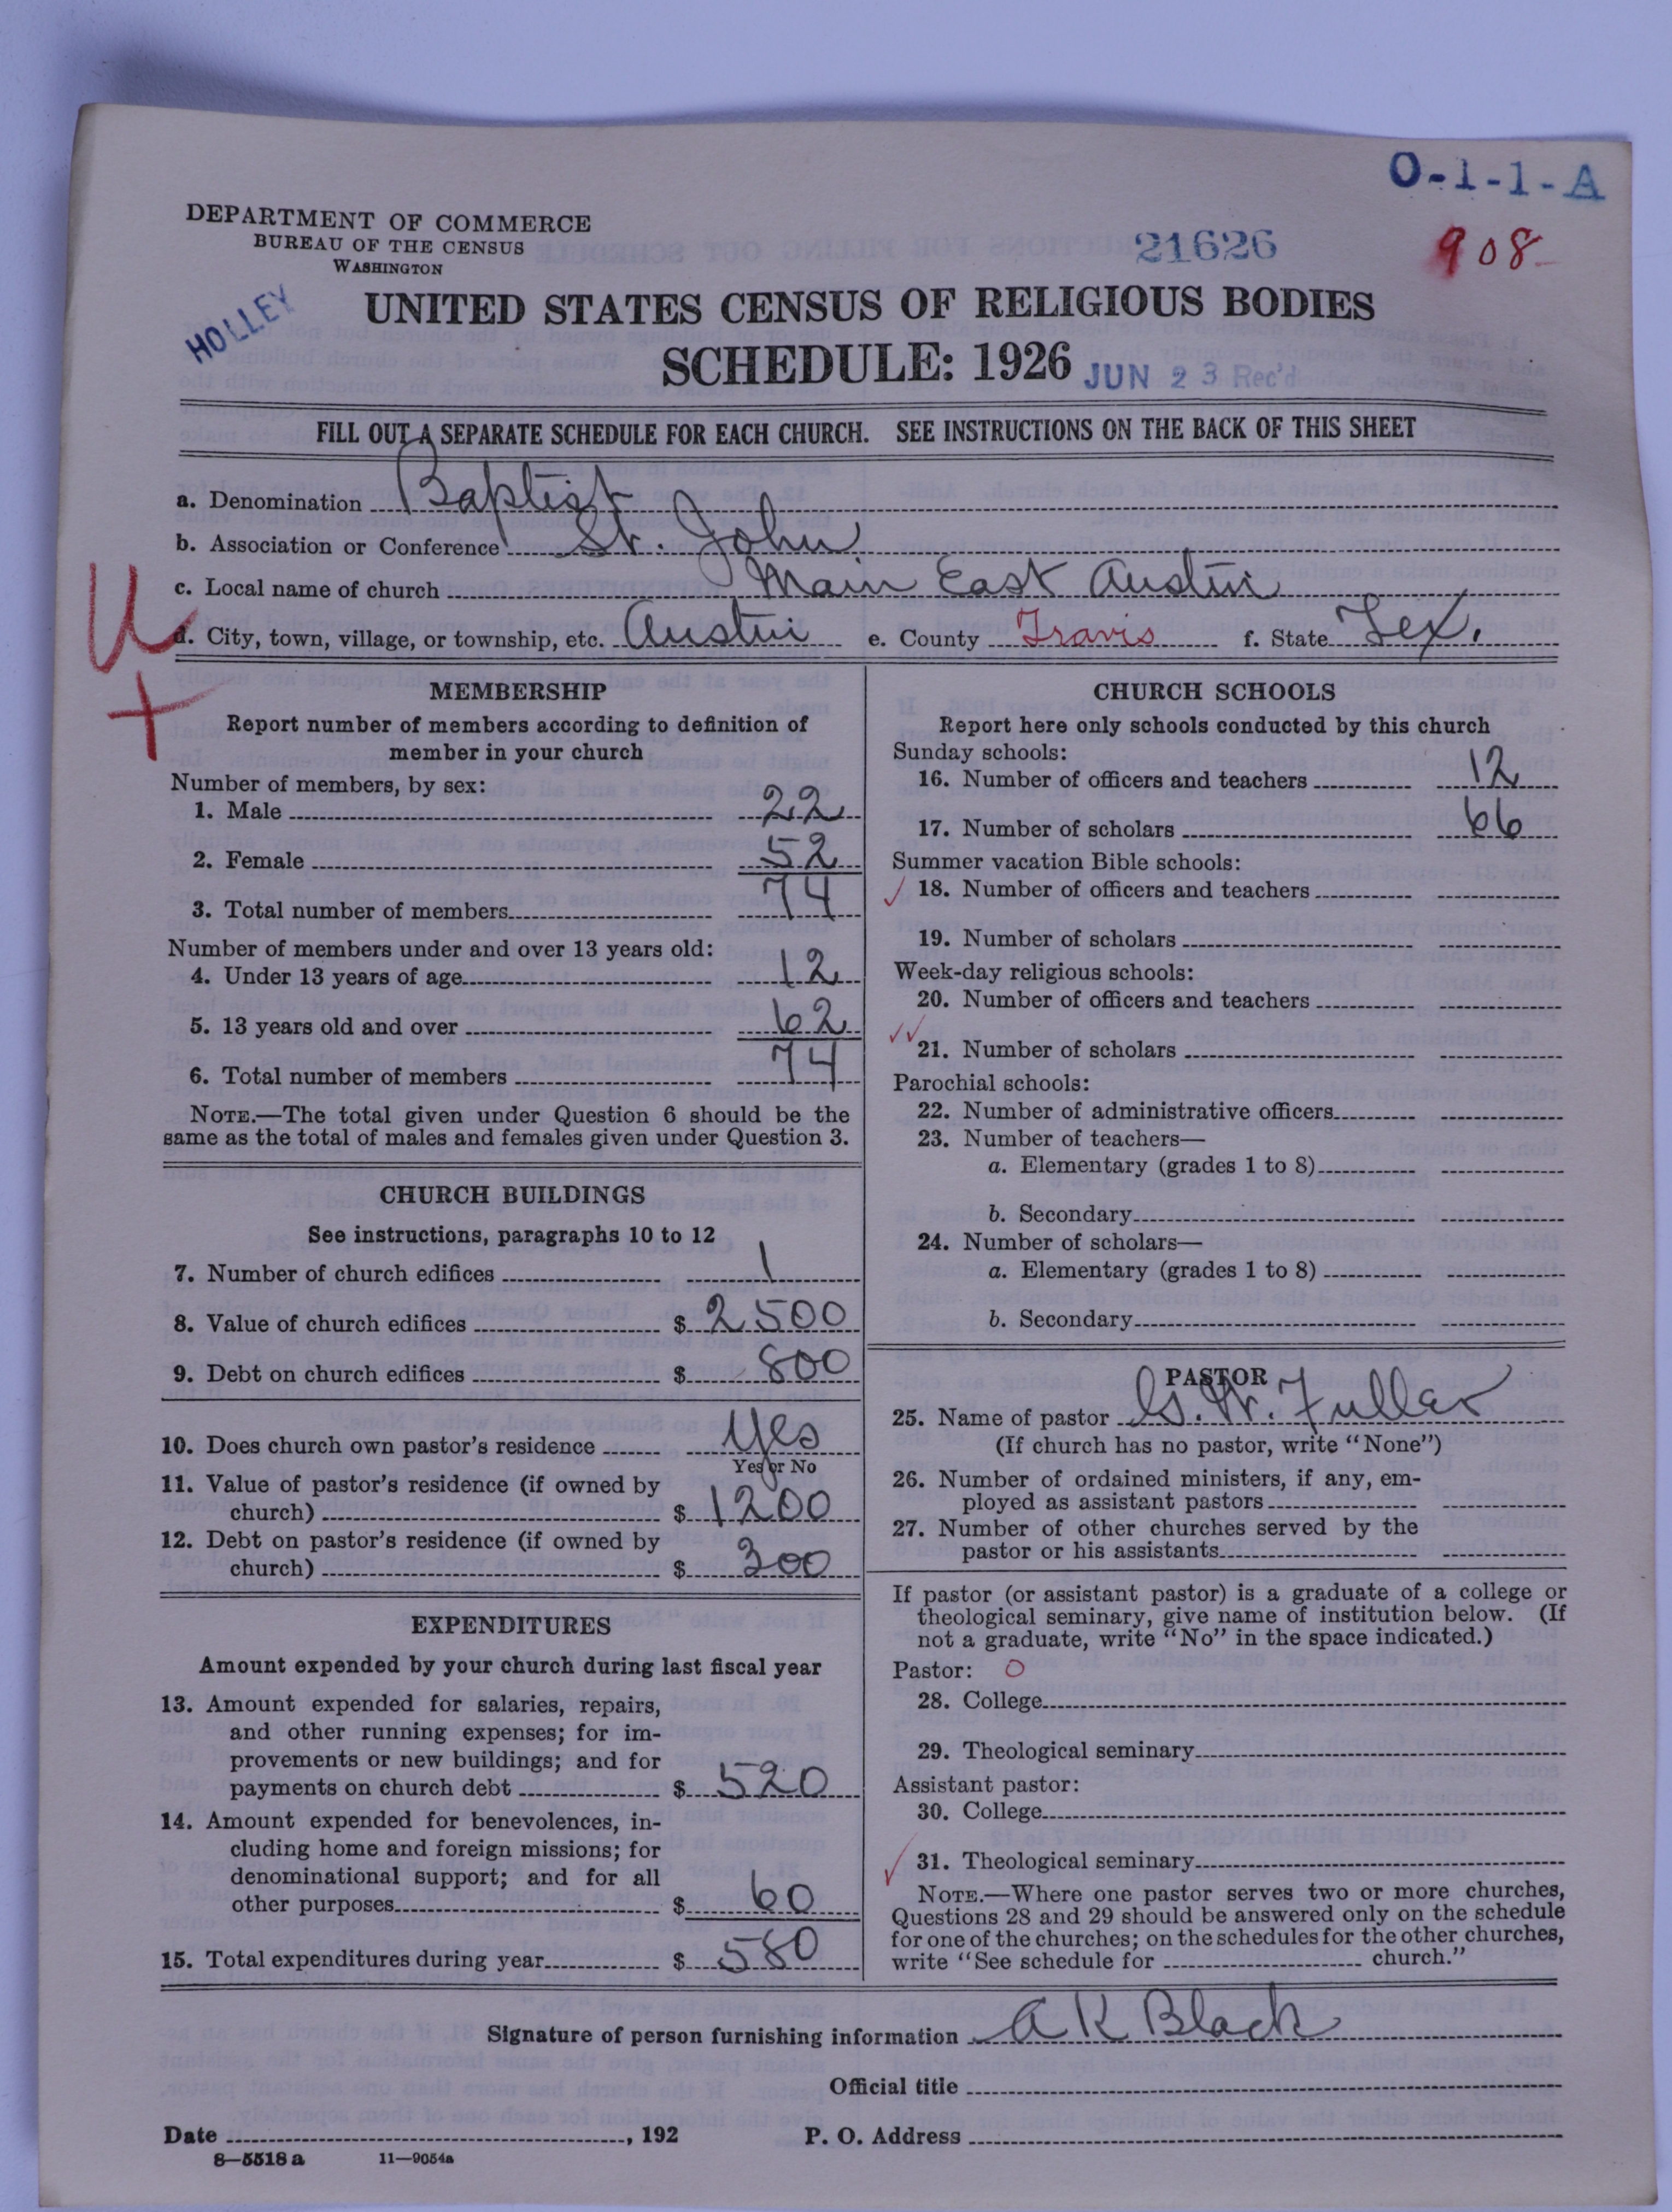 O-1-1-A
DEPARTMENT OF COMMERCE
BUREAU OF THE CENSUS
WASHINGTON
21626
908
HOLLEY
UNITED STATES CENSUS OF RELIGIOUS BODIES
SCHEDULE: 1926
JUN 23 Rec'd
FILL OUT A SEPARATE SCHEDULE FOR EACH CHURCH. SEE INSTRUCTIONS ON THE BACK OF THIS SHEET
a. Denomination Baptist
b. Association or Conference St. John
c. Local name of church Main East Austin
d. City, town, village, or township, etc. Austin e. County Travis f. State Tex.
U
+
MEMBERSHIP
Report number of members according to definition of
member in your church
Number of members, by sex:
1. Male 22
2. Female 52
3. Total number of members 74
Number of members under and over 13 years old:
4. Under 13 years of age 12
5. 13 years old and over 62
6. Total number of members 74
NOTE.—The total given under Question 6 should be the
same as the total of males and females given under Question 3.
CHURCH BUILDINGS
See instructions, paragraphs 10 to 12
7. Number of church edifices 1
8. Value of church edifices $ 2500
9. Debt on church edifices $ 800
10. Does church own pastor's residence Yes
Yes or No
11. Value of pastor's residence (if owned by
church) $ 1200
12. Debt on pastor's residence (if owned by
church) $ 300
EXPENDITURES
Amount expended by your church during last fiscal year
13. Amount expended for salaries, repairs,
and other running expenses; for im-
provements or new buildings; and for
payments on church debt $ 520
14. Amount expended for benevolences, in-
cluding home and foreign missions; for
denominational support; and for all
other purposes $ 60
15. Total expenditures during year $ 580
CHURCH SCHOOLS
Report here only schools conducted by this church
Sunday schools:
16. Number of officers and teachers 12
17. Number of scholars 66
Summer vacation Bible schools:
✓ 18. Number of officers and teachers
19. Number of scholars
Week-day religious schools:
20. Number of officers and teachers
✓✓ 21. Number of scholars
Parochial schools:
22. Number of administrative officers
23. Number of teachers—
a. Elementary (grades 1 to 8)
b. Secondary
24. Number of scholars—
a. Elementary (grades 1 to 8)
b. Secondary
PASTOR
25. Name of pastor G. W. Fuller
(If church has no pastor, write "None")
26. Number of ordained ministers, if any, em-
ployed as assistant pastors
27. Number of other churches served by the
pastor or his assistants
If pastor (or assistant pastor) is a graduate of a college or
theological seminary, give name of institution below. (If
not a graduate, write "No" in the space indicated.)
Pastor: O
28. College
29. Theological seminary
Assistant pastor:
30. College
✓ 31. Theological seminary
NOTE.—Where one pastor serves two or more churches,
Questions 28 and 29 should be answered only on the schedule
for one of the churches; on the schedules for the other churches,
write "See schedule for church."
Signature of person furnishing information A K Black
Official title
Date , 192 P. O. Address
8—5518 a 11—9054a